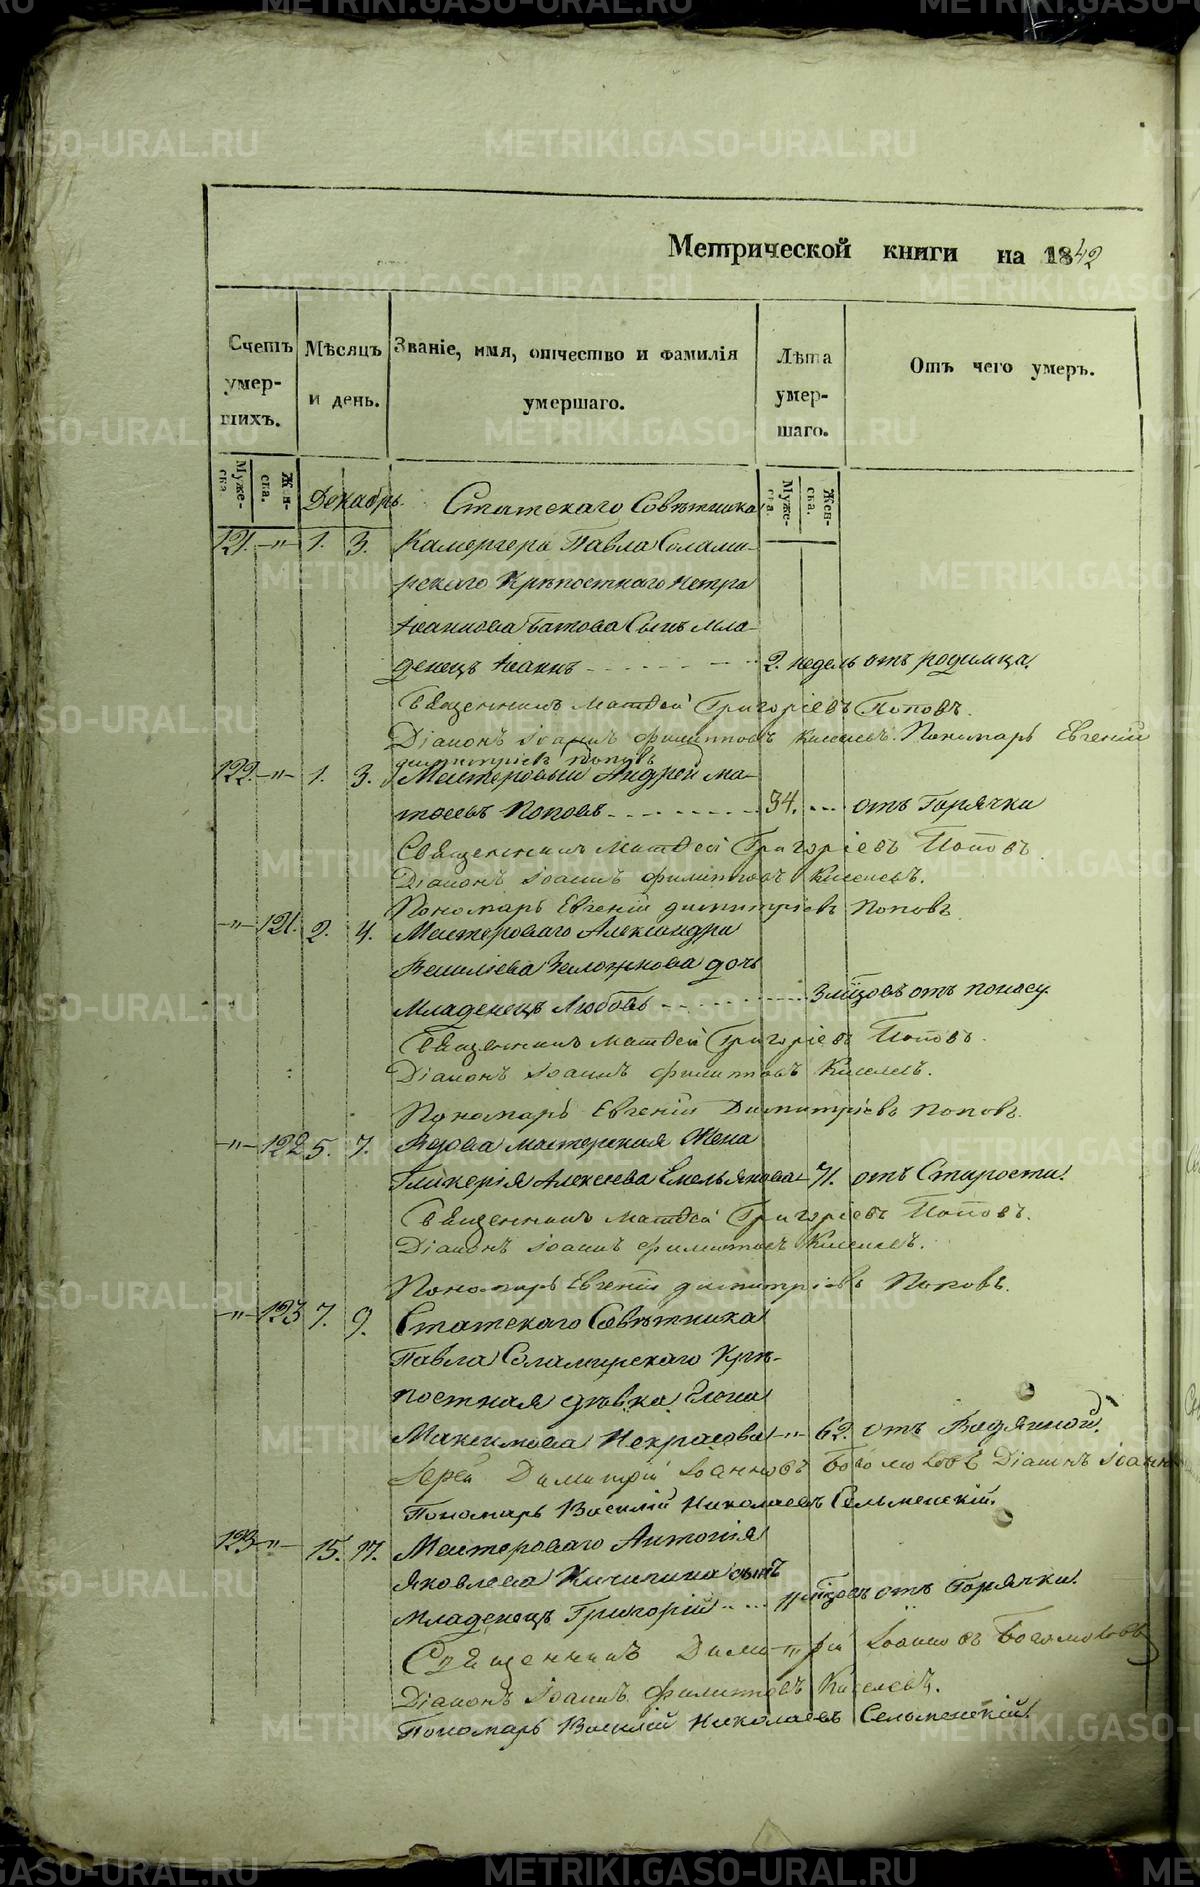 Метрической книги на 1842
Счетъ умер-шихъ.
Мѣсяцъ и день.
Званіе, имя, отчество и фамилія умершаго.
Лѣта умер-шаго.
Отъ чего умеръ.
Муже-ска.
Жен-ска.
Муже-ска.
Жен-ска.
Декабрь. Статскаго Совѣтника
121. —"— 1. 3. Камергера Павла Солами-
рскаго Крѣпостнаго Петра
Іоаннова Батова Сынъ мла-
денецъ Іоаннъ 2. недель отъ родимца.
Священникъ Матфей Григоріевъ Поповъ.
Діаконъ Іоаннъ Филипповъ Киселевъ. Пономарь Евгеній
Димитріевъ Поповъ
122. —"— 1. 3. Мастеровый Андрей Ма-
тѳеевъ Поповъ 34. отъ Горячки
Священникъ Матфей Григоріевъ Поповъ.
Діаконъ Іоаннъ Филипповъ Киселевъ.
Пономарь Евгеній Димитріевъ Поповъ
—"— 121. 2. 4. Мастероваго Александра
Василіева дочь
Младенецъ Любовь 3 мцовъ отъ поносу.
Священникъ Матфей Григоріевъ Поповъ.
Діаконъ Іоаннъ Филипповъ Киселевъ.
Пономарь Евгеній Димитріевъ Поповъ.
—"— 122 5. 7. Вдова мастерская Жена
Гликерія Алексѣева Емельянова 71. отъ Старости.
Священникъ Матфей Григоріевъ Поповъ.
Діаконъ Іоаннъ Филипповъ Киселевъ.
Пономарь Евгеній Димитріевъ Поповъ.
—"— 123 7. 9. Статскаго Совѣтника
Павла Соламирскаго Крѣ-
постная дѣвка Елена
Максимова Некрасова —"— 62. отъ Водяной.
Іерей Димитрій Іоанновъ Боголюбовъ Діаконъ Іоаннъ
Пономарь Василій Николаевъ Сельменскій.
123 —"— 15. 17. Мастероваго Антонія
Яковлева Кичигина сынъ
Младенецъ Григорій 11 мцовъ отъ Горячки.
Священникъ Димитрій Іоанновъ Боголюбовъ
Діаконъ Іоаннъ Филипповъ Киселевъ.
Пономарь Василій Николаевъ Сельменскій.
METRIKI.GASO-URAL.RU